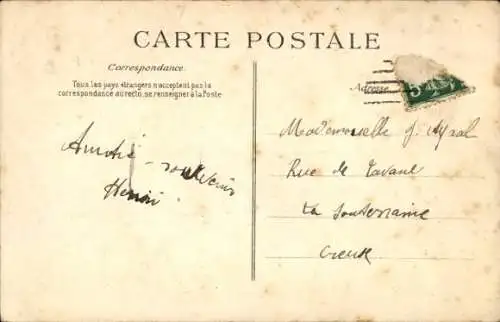 CARTE POSTALE
Correspondance
Tous les pays étrangers n'acceptent pas la
correspondance au recto, se renseigner à la Poste
Adresse
Amitié - souvenir
Henri
Mademoiselle J.
Rue de Lavaud
La Souterraine
Creuse